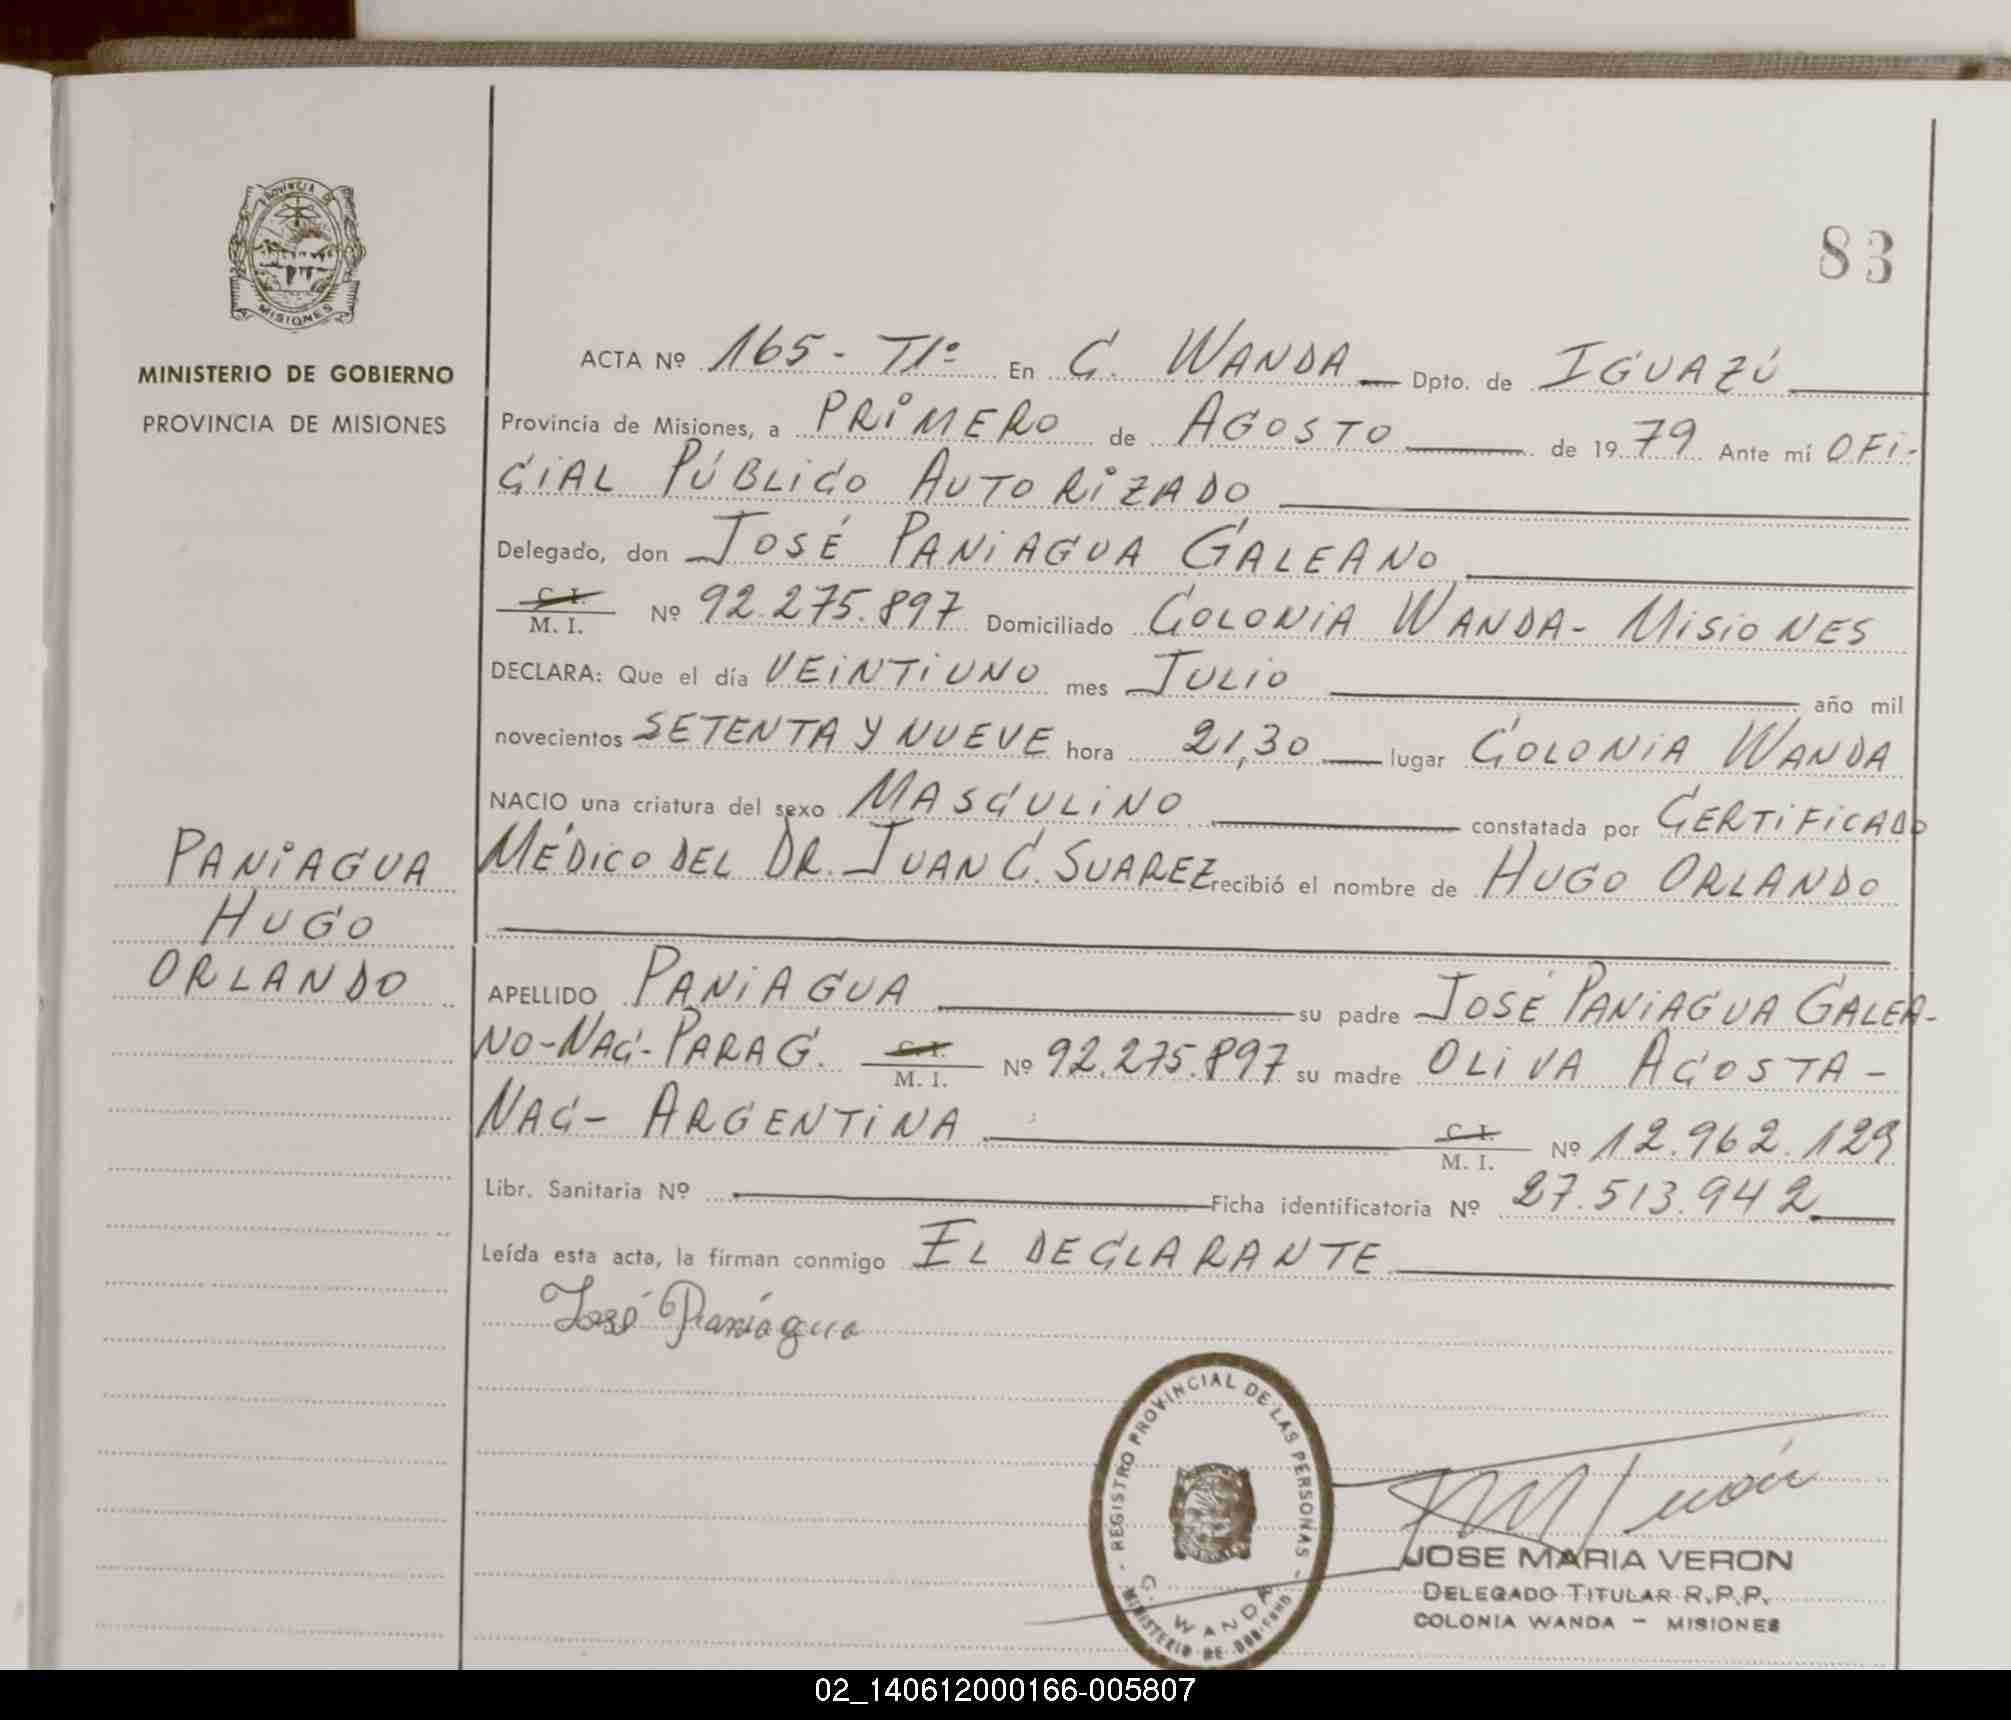 PROVINCIA DE
MISIONES
MINISTERIO DE GOBIERNO
PROVINCIA DE MISIONES
83
ACTA Nº 165 - Tº 1º En C. WANDA Dpto. de IGUAZÚ
Provincia de Misiones, a PRIMERO de AGOSTO de 1979 Ante mí OFI-
CIAL PÚBLICO AUTORIZADO
Delegado, don JOSÉ PANIAGUA GALEANO
C. I.
M. I. Nº 92.275.897 Domiciliado COLONIA WANDA - MISIONES
DECLARA: Que el día VEINTIUNO mes JULIO año mil
novecientos SETENTA Y NUEVE hora 21,30 lugar COLONIA WANDA
NACIO una criatura del sexo MASCULINO constatada por CERTIFICADO
MÉDICO DEL DR. JUAN C. SUAREZ recibió el nombre de HUGO ORLANDO
PANIAGUA
HUGO
ORLANDO
APELLIDO PANIAGUA su padre JOSÉ PANIAGUA GALEA-
NO - NAC - PARAG. C. I. M. I. Nº 92.275.897 su madre OLIVA ACOSTA -
NAC - ARGENTINA C. I. M. I. Nº 12.962.129
Libr. Sanitaria Nº Ficha identificatoria Nº 27.513.942
Leída esta acta, la firman conmigo EL DECLARANTE
José Paniagua
- REGISTRO PROVINCIAL DE LAS PERSONAS -
C. WANDA
MINISTERIO DE GOB.
JOSE MARIA VERON
DELEGADO TITULAR R.P.P.
COLONIA WANDA - MISIONES
02_140612000166-005807